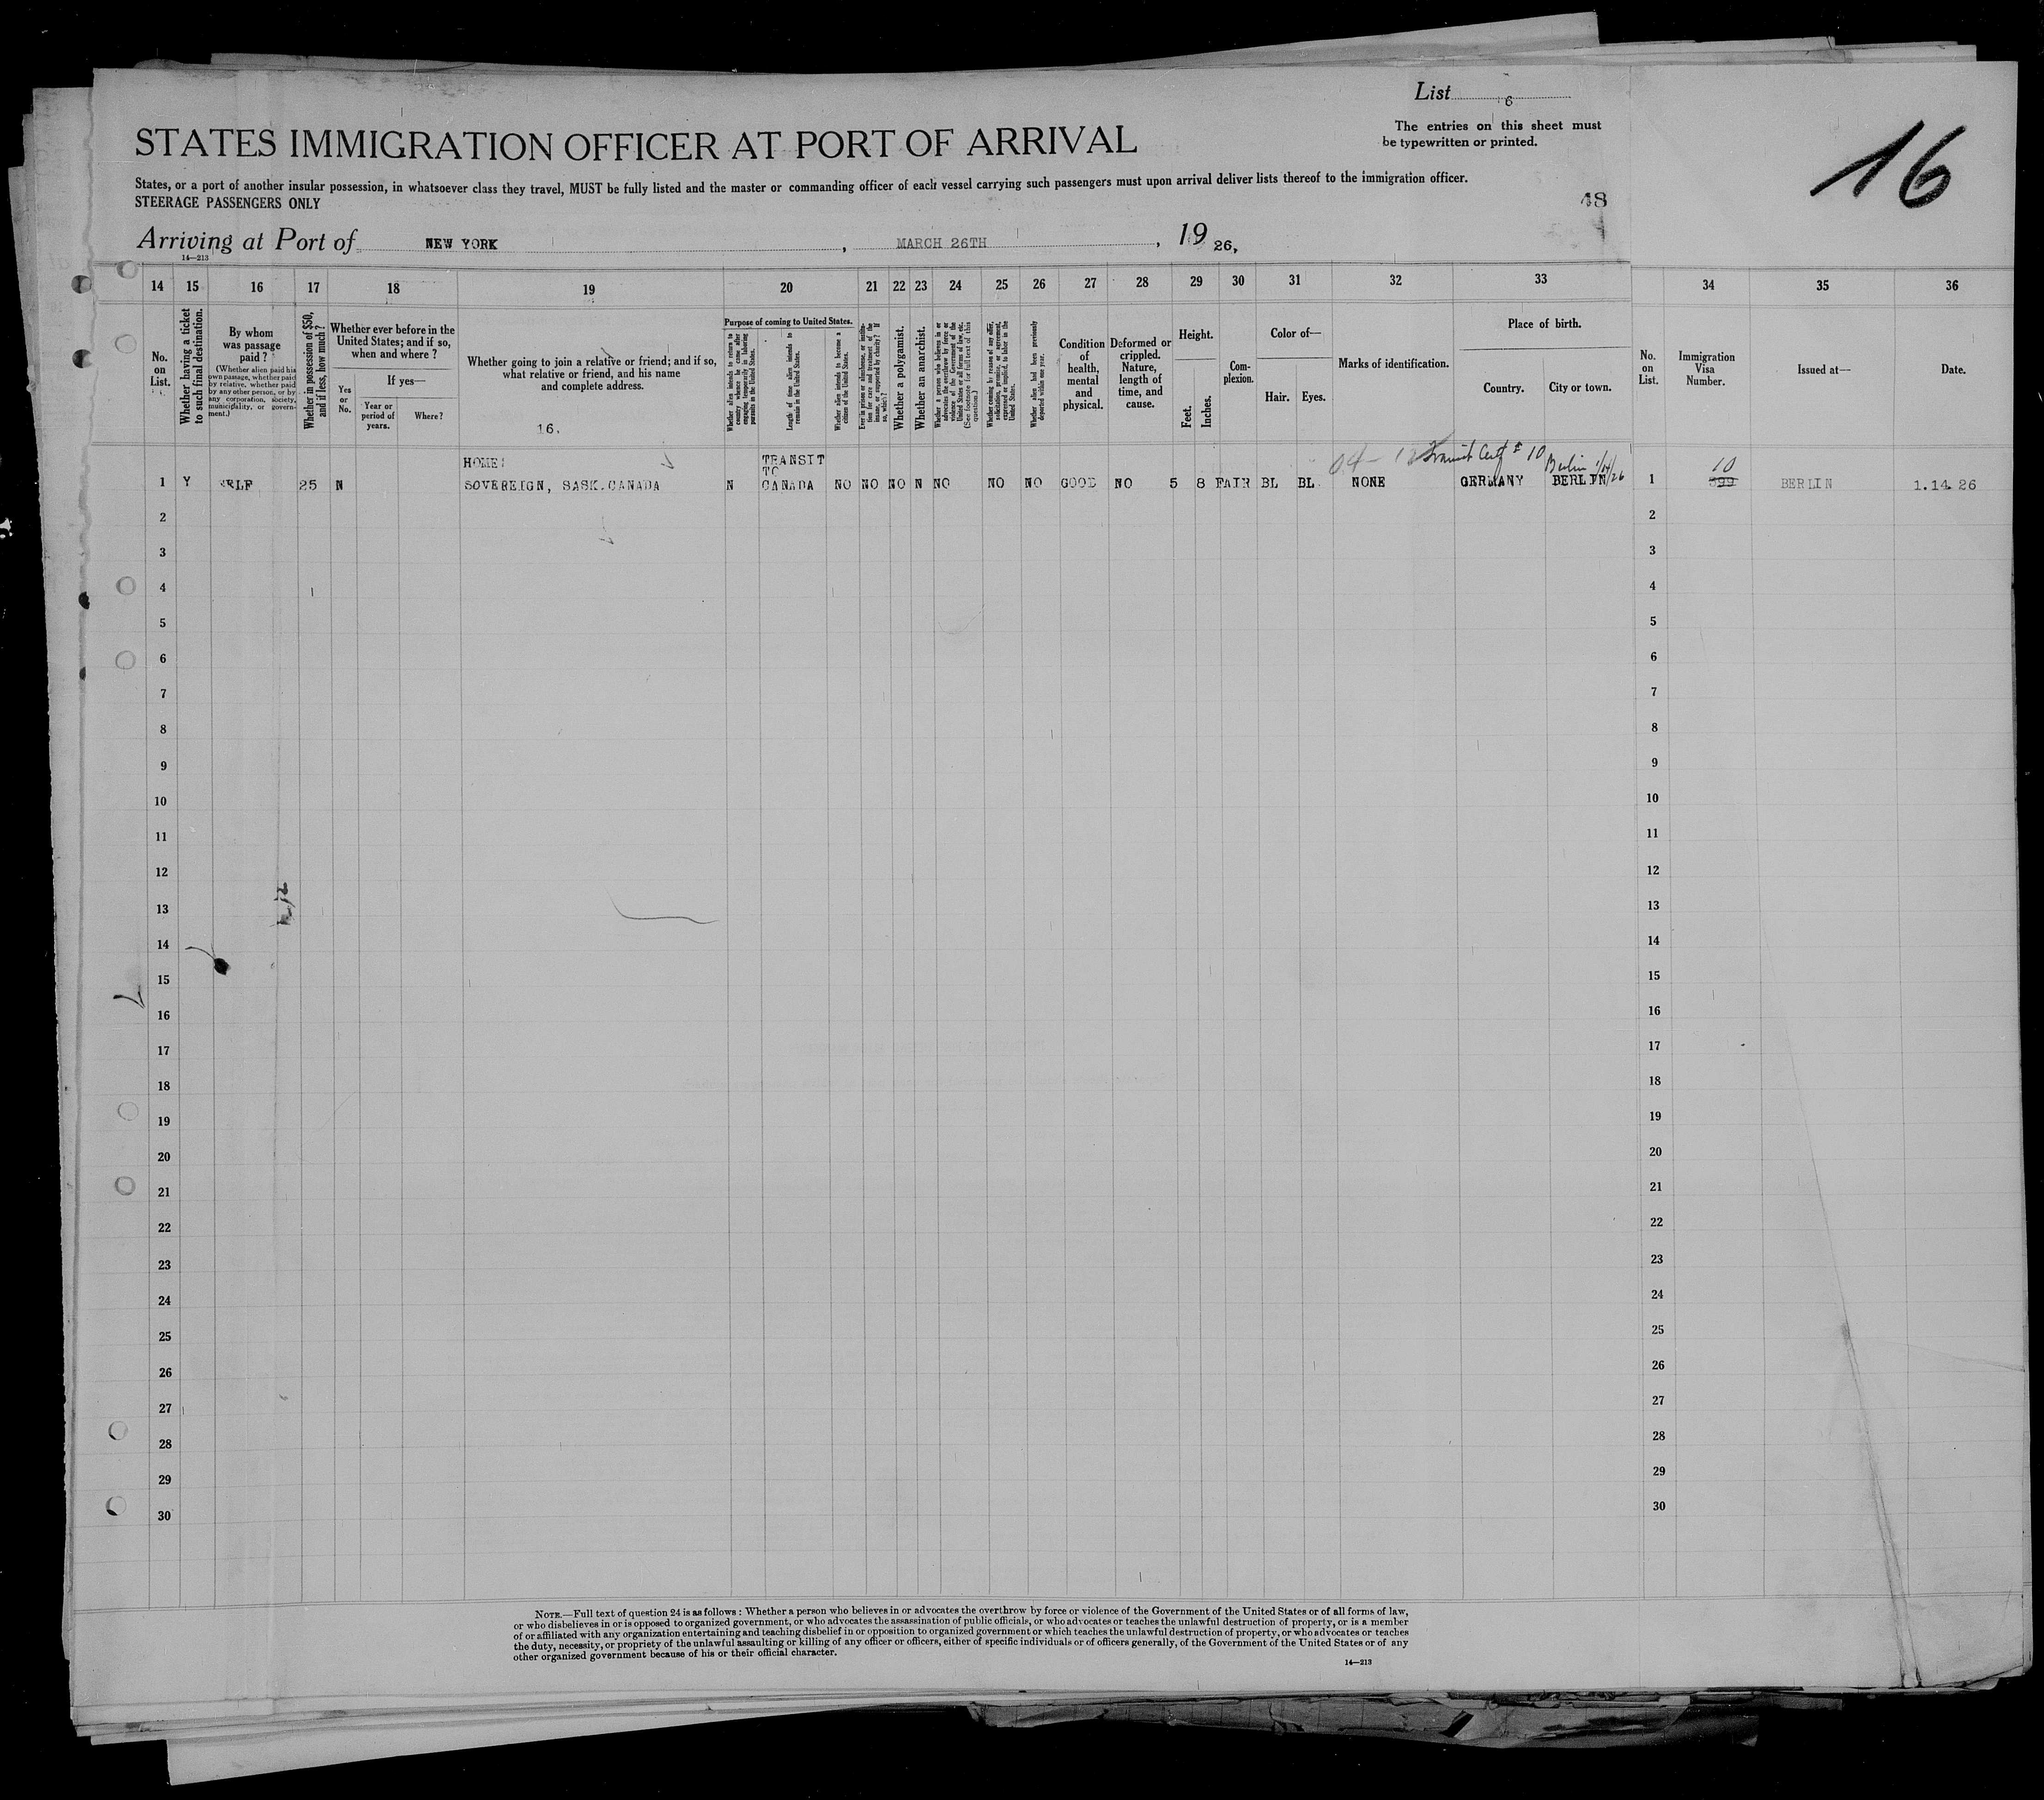 List 6
The entries on this sheet must
be typewritten or printed.
16
STATES IMMIGRATION OFFICER AT PORT OF ARRIVAL
States, or a port of another insular possession, in whatsoever class they travel, MUST be fully listed and the master or commanding officer of each vessel carrying such passengers must upon arrival deliver lists thereof to the immigration officer.
STEERAGE PASSENGERS ONLY
48
Arriving at Port of NEW YORK, MARCH 26TH, 19 26,
14—213
14 15 16 17 18 19 20 21 22 23 24 25 26 27 28 29 30 31 32 33 34 35 36
No. on List.
Whether having a ticket to such final destination.
By whom was passage paid?
(Whether alien paid his own passage, whether paid by relative, whether paid by any other person, or by any corporation, society, municipality, or government.)
Whether in possession of $50, and if less, how much?
Whether ever before in the United States; and if so, when and where?
Yes or No.
If yes—
Year or period of years.
Where?
Whether going to join a relative or friend; and if so, what relative or friend, and his name and complete address.
16.
Purpose of coming to United States.
Whether alien intends to return to country whence he came after engaging temporarily in laboring pursuits in the United States.
Length of time alien intends to remain in the United States.
Whether alien intends to become a citizen of the United States.
Ever in prison or almshouse, or institution for care and treatment of the insane, or supported by charity? If so, which?
Whether a polygamist.
Whether an anarchist.
Whether a person who believes in or advocates the overthrow by force or violence of the Government of the United States or all forms of law, etc. (See footnote for full text of this question.)
Whether coming by reason of any offer, solicitation, promise, or agreement, expressed or implied, to labor in the United States.
Whether alien had been previously deported within one year.
Condition of health, mental and physical.
Deformed or crippled. Nature, length of time, and cause.
Height.
Feet.
Inches.
Complexion.
Color of—
Hair.
Eyes.
Marks of identification.
Place of birth.
Country.
City or town.
No. on List.
Immigration Visa Number.
Issued at—
Date.
Transit Cert # 10
Berlin 1/14/26
HOME: TRANSIT TO 10
1 Y SELF 25 N SOVEREIGN, SASK.CANADA N CANADA NO NO NO N NO NO NO GOOD NO 5 8 FAIR BL BL NONE GERMANY BERLIN 1 399 BERLIN 1.14.26
2 2
3 3
4 4
5 5
6 6
7 7
8 8
9 9
10 10
11 11
12 12
13 13
14 14
15 15
16 16
17 17
18 18
19 19
20 20
21 21
22 22
23 23
24 24
25 25
26 26
27 27
28 28
29 29
30 30
NOTE.—Full text of question 24 is as follows: Whether a person who believes in or advocates the overthrow by force or violence of the Government of the United States or of all forms of law,
or who disbelieves in or is opposed to organized government, or who advocates the assassination of public officials, or who advocates or teaches the unlawful destruction of property, or is a member
of or affiliated with any organization entertaining and teaching disbelief in or opposition to organized government or which teaches the unlawful destruction of property, or who advocates or teaches
the duty, necessity, or propriety of the unlawful assaulting or killing of any officer or officers, either of specific individuals or of officers generally, of the Government of the United States or of any
other organized government because of his or their official character.
14—213